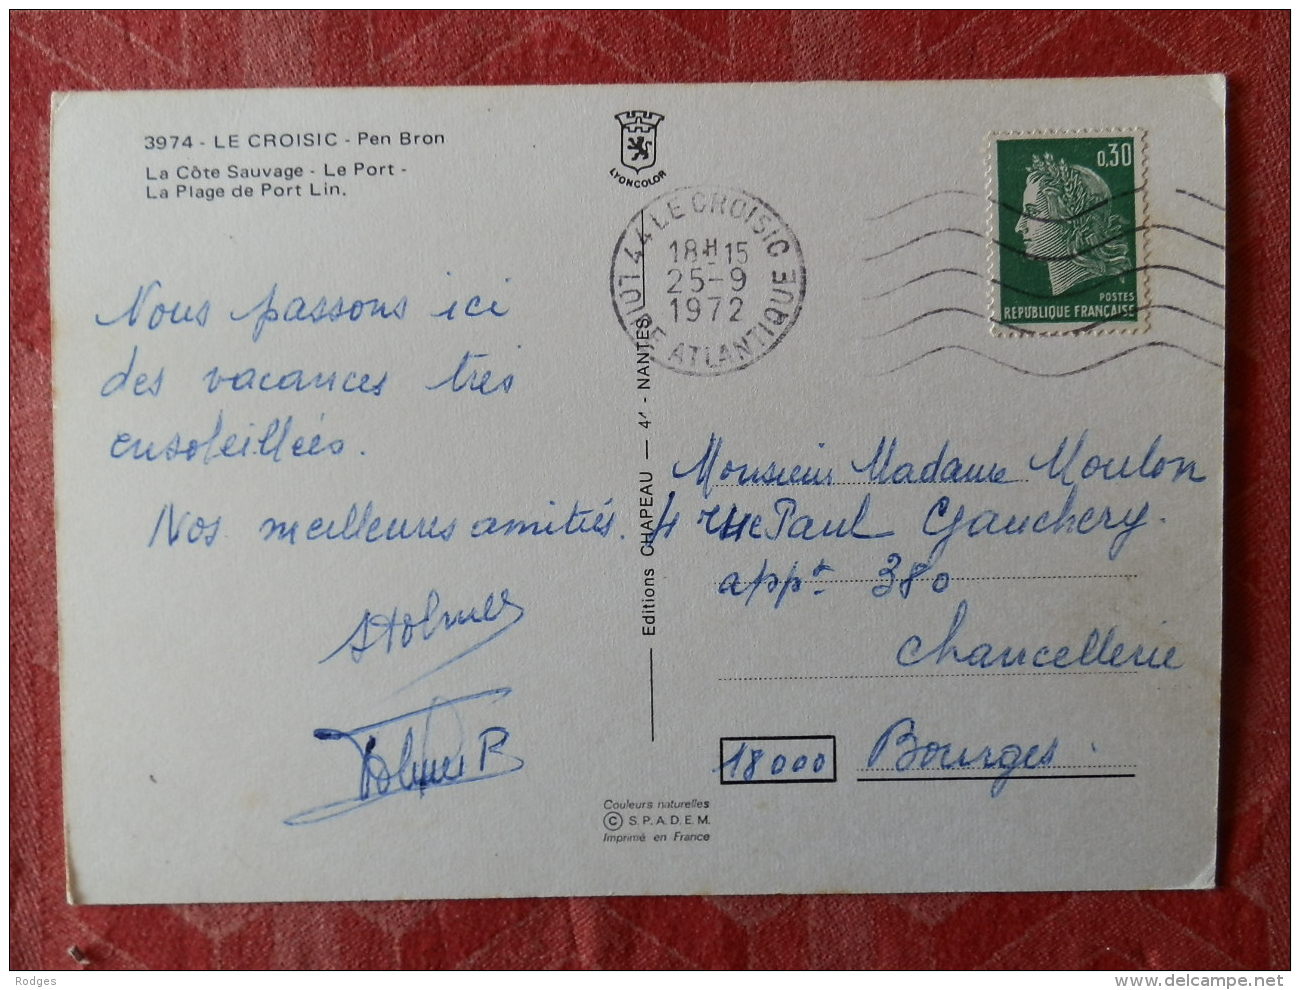 3974 - LE CROISIC - Pen Bron
La Côte Sauvage - Le Port -
La Plage de Port Lin.
LYONCOLOR
44 LE CROISIC
18H15
25-9
1972
LOIRE ATLANTIQUE
0,30
POSTES
REPUBLIQUE FRANÇAISE
Nous passons ici
des vacances très
ensoleillées.
Nos meilleures amitiés.
Editions CHAPEAU — 44 - NANTES
Monsieur Madame Moulon
4 rue Paul Gauchery.
appt 380
Chancellerie
18000 Bourges.
Couleurs naturelles
© S.P.A.D.E.M.
Imprimé en France
Rodges
www.delcampe.net